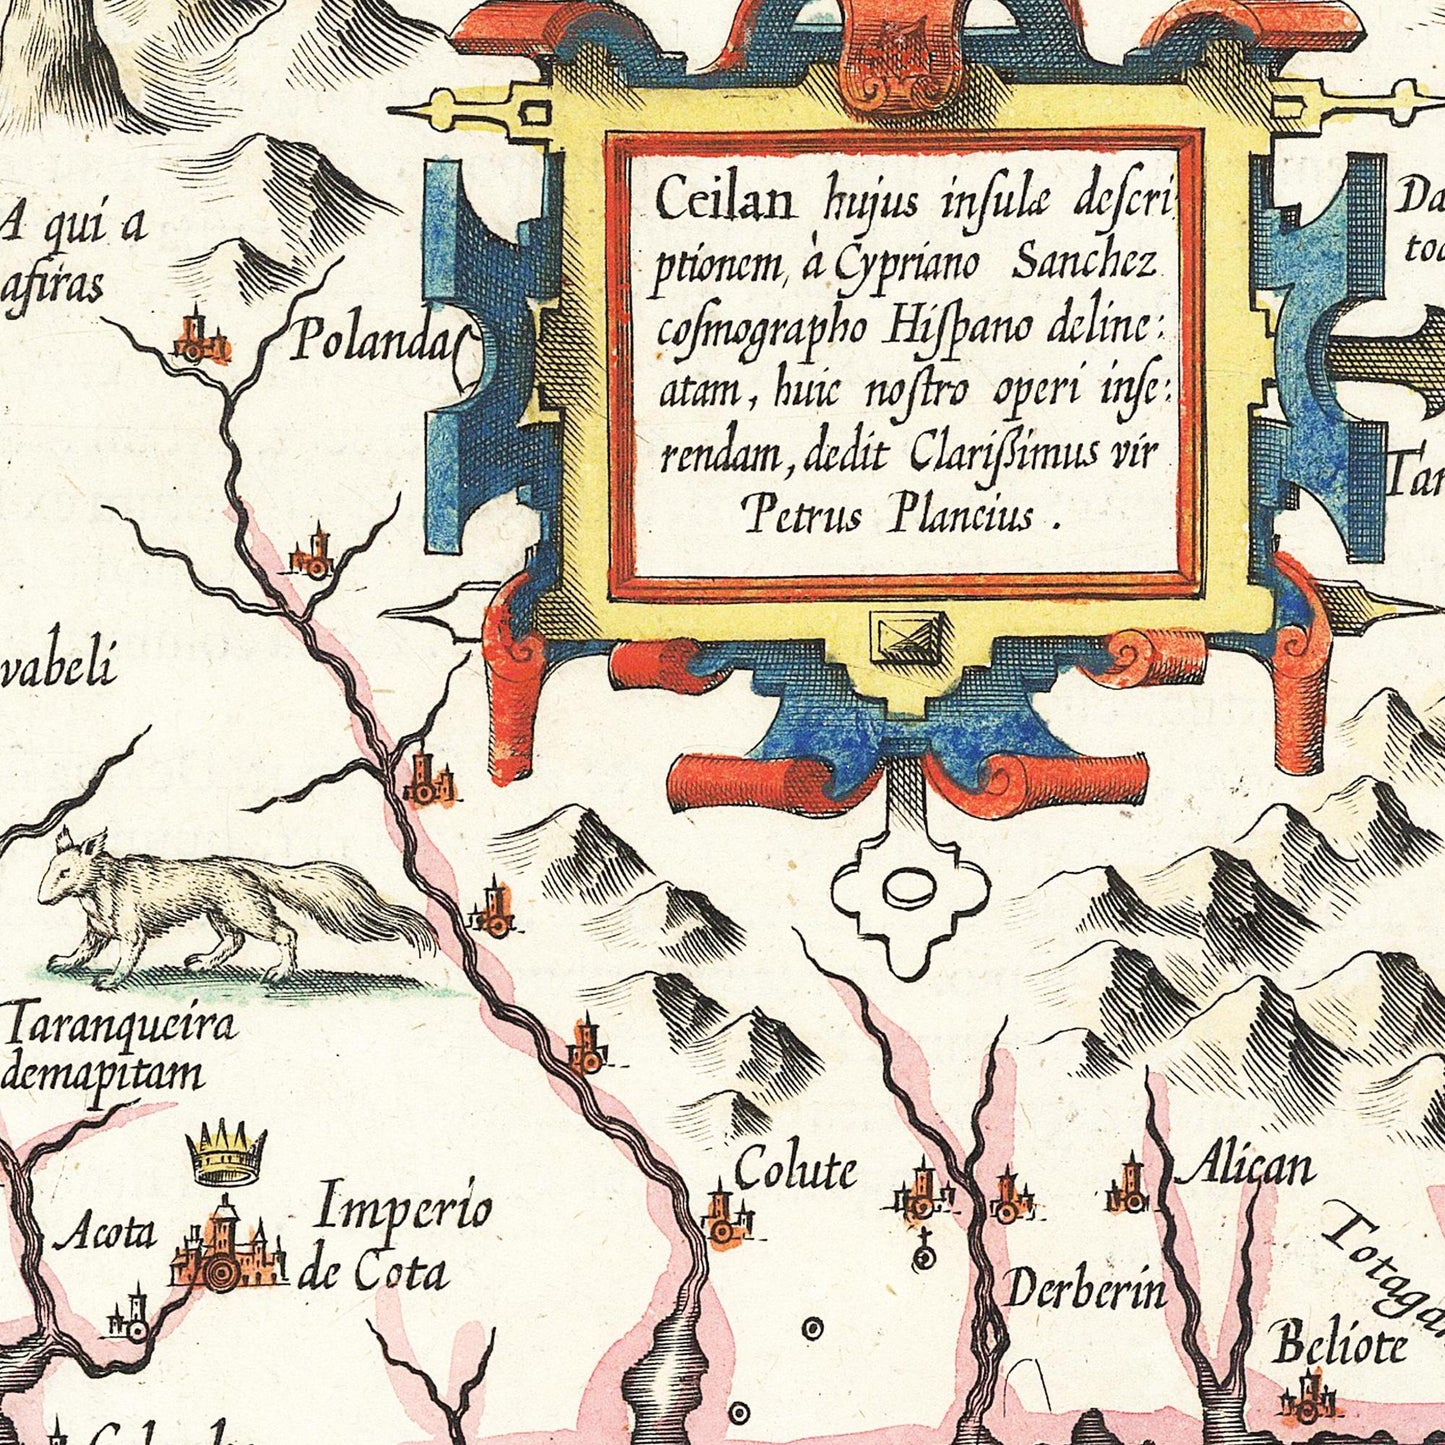 Ceilan hujus inſulæ deſcri
ptionem, à Cypriano Sanchez
coſmographo Hiſpano deline:
atam, huic noſtro operi inſe:
rendam, dedit Clarißimus vir
Petrus Plancius .
A qui a
afiras
Polanda
vabeli
Taranqueira
demapitam
Acota
Imperio
de Cota
Colute
Alican
Derberin
Beliote